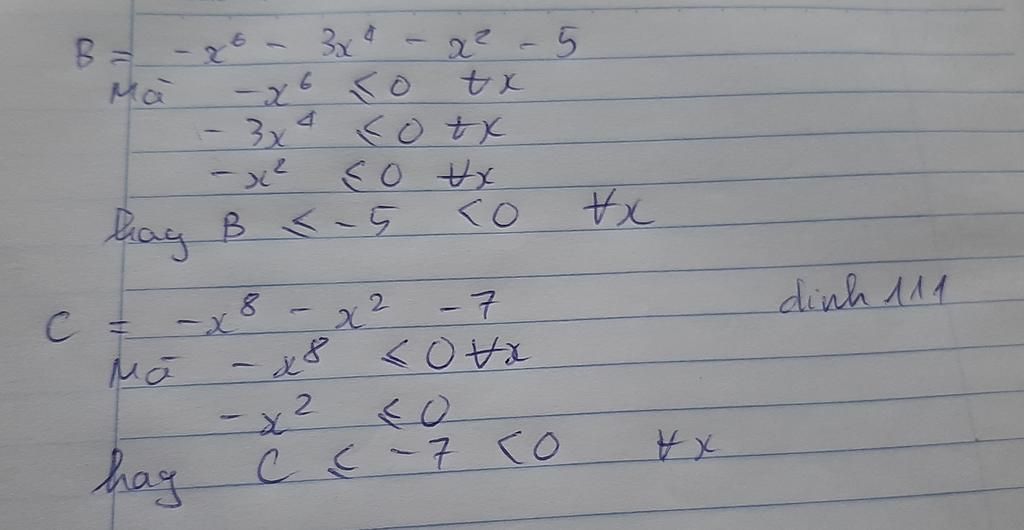 B = -x⁶ - 3x⁴ - x² - 5
Mà -x⁶ ≤ 0 ∀x
- 3x⁴ ≤ 0 ∀x
-x² ≤ 0 ∀x
hay B ≤ -5 < 0 ∀x
C = -x⁸ - x² - 7
dinh 111
Mà -x⁸ ≤ 0 ∀x
-x² ≤ 0
hay C ≤ -7 < 0 ∀x